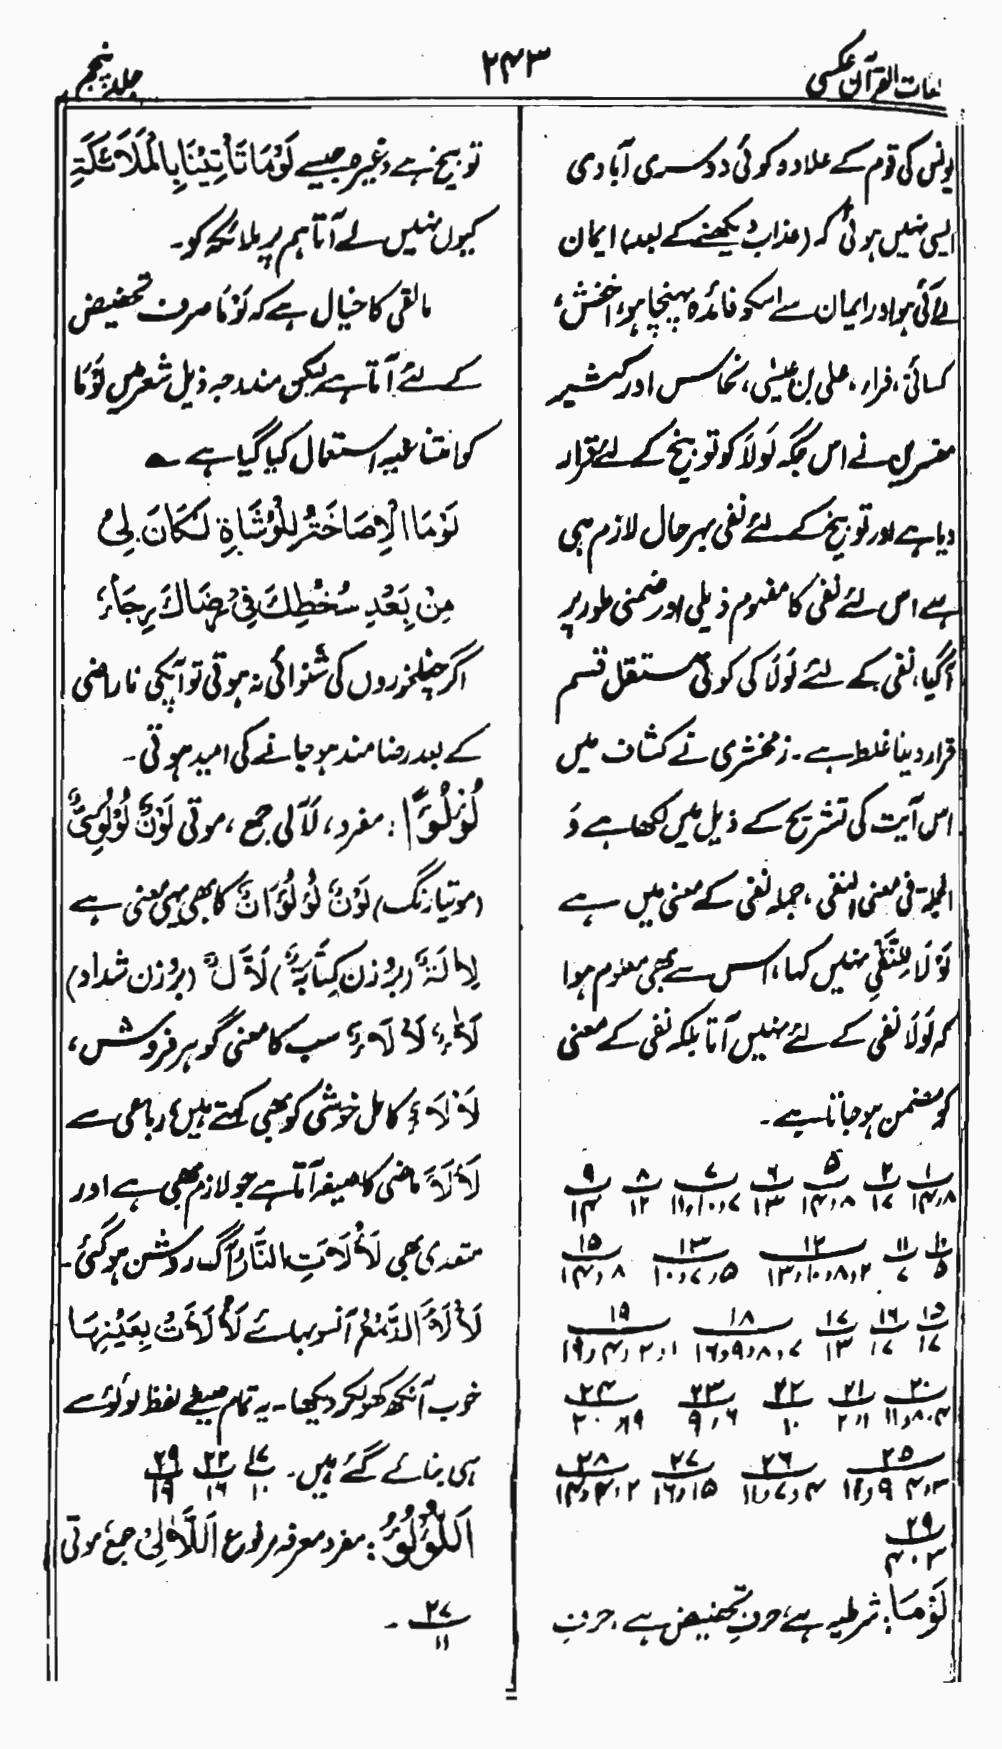 لغات القرآن عکسی
۲۴۳
جلد پنجم
یونس کی قوم کے علاوہ کوئی دوسری آبادی
ایسی نہیں ہوئی کہ (عذاب دیکھنے کے بعد) ایمان
لے آئی ہو اور ایمان سے اسکو فائدہ پہنچا ہو، اخفش،
کسائی، فراء، علی بن عیسٰی، نحاس اور کثیر
مفسرین نے اس جگہ لَوْلَا کو توبیخ کے لئے قرار
دیا ہے اور توبیخ کے لئے نفی بہرحال لازم ہی
ہے اس لئے نفی کا مفہوم ذیلی اور ضمنی طور پر
آگیا، نفی کے لئے لَوْلَا کی کوئی مستقل قسم
قرار دینا غلط ہے۔ زمخشری نے کشاف میں
اس آیت کی تشریح کے ذیل میں لکھا ہے وَ
الجملۃ فی معنی النفی، جملہ نفی کے معنی میں ہے
لَوْلَا لِلنَّفْیِ نہیں کہا، اس سے بھی معلوم ہوا
کہ لَوْلَا نفی کے لئے نہیں آتا بلکہ نفی کے معنی
کو متضمن ہو جاتا ہے۔
۱ ۲ ۵ ۶ ۷ ۸ ۹
۱۴،۸ ۱۷ ۱۴،۸ ۱۳ ۱۱،۱۰،۷ ۱۲ ۱۴
۱۰ ۱۱ ۱۲ ۱۳ ۱۵
۵ ۷ ۱۳،۱۰،۸،۲ ۱۰،۷،۵ ۱۴،۸
۱۵ ۱۶ ۱۷ ۱۸ ۱۹
۱۷ ۱۷ ۱۳ ۱۶،۹،۸،۷ ۱۹،۴،۲،۱
۲۰ ۲۱ ۲۲ ۲۳ ۲۴
۱۱،۸،۴ ۲،۱ ۱۰ ۹،۶ ۲۰،۱۹
۲۵ ۲۶ ۲۷ ۲۸
۴،۳ ۱۲،۹ ۱۱،۷،۴ ۱۶،۱۵ ۱۴،۴،۲
۲۹
۴،۳
لَوْمَا: شرطیہ ہے، حرفِ تحضیض ہے، حرفِ
توبیخ ہے وغیرہ جیسے لَوْمَا تَأْتِیْنَا بِالْمَلَائِکَةِ
کیوں نہیں لے آتا ہم پر ملائکہ کو۔
مالقی کا خیال ہے کہ لَوْمَا صرف تحضیض
کے لئے آتا ہے لیکن مندرجہ ذیل شعر میں لَوْمَا
کو امتناعیہ استعمال کیا گیا ہے ؎
لَوْمَا الْاِصَاخَةُ لِلْوُشَاةِ لَکَانَ لِیْ
مِنْ بَعْدِ سُخْطِكَ فِیْ رِضَاكَ رِجَاءُ
اگر چغلخوروں کی شنوائی نہ ہوتی تو آپکی ناراضی
کے بعد رضامند ہو جانے کی امید ہوتی۔
لُؤْلُؤًا: مفرد، لَآلی جمع، موتی لَوْنٌ لُؤْلُوِیٌّ
(موتیا رنگ) لَوْنٌ لُؤْلُؤَانٌ کا بھی یہی معنی ہے
لِاٰلَةٌ (بروزن کِتَابَةٌ) لَاَّلٌ (بروزن شداد)
لَاّٰءٌ، لَاْ لَاءٌ سب کا معنی گوہر فروش،
لَاْلَاءٌ کامل خوشی کو بھی کہتے ہیں، رباعی سے
لَاْلَاَ ماضی کا صیغہ آتا ہے جو لازم بھی ہے اور
متعدی بھی لَاْلَاَتِ النَّارُ آگ روشن ہوگئی۔
لَاْلَاَ الدَّمْعُ آنسو بہائے لَاْلَاَتْ بِعَیْنِہَا
خوب آنکھ کھولکر دیکھا۔ یہ تمام صیغے لفظ لؤلؤ سے
ہی بنائے گئے ہیں۔ ۱۷ ۲۲ ۲۹
۱۰ ۱۶ ۱۹
اَللُّؤْلُؤُ: مفرد معرفہ مرفوع اَللَّاٰلِیْ جمع، موتی
۲۷
۱۱ ۔